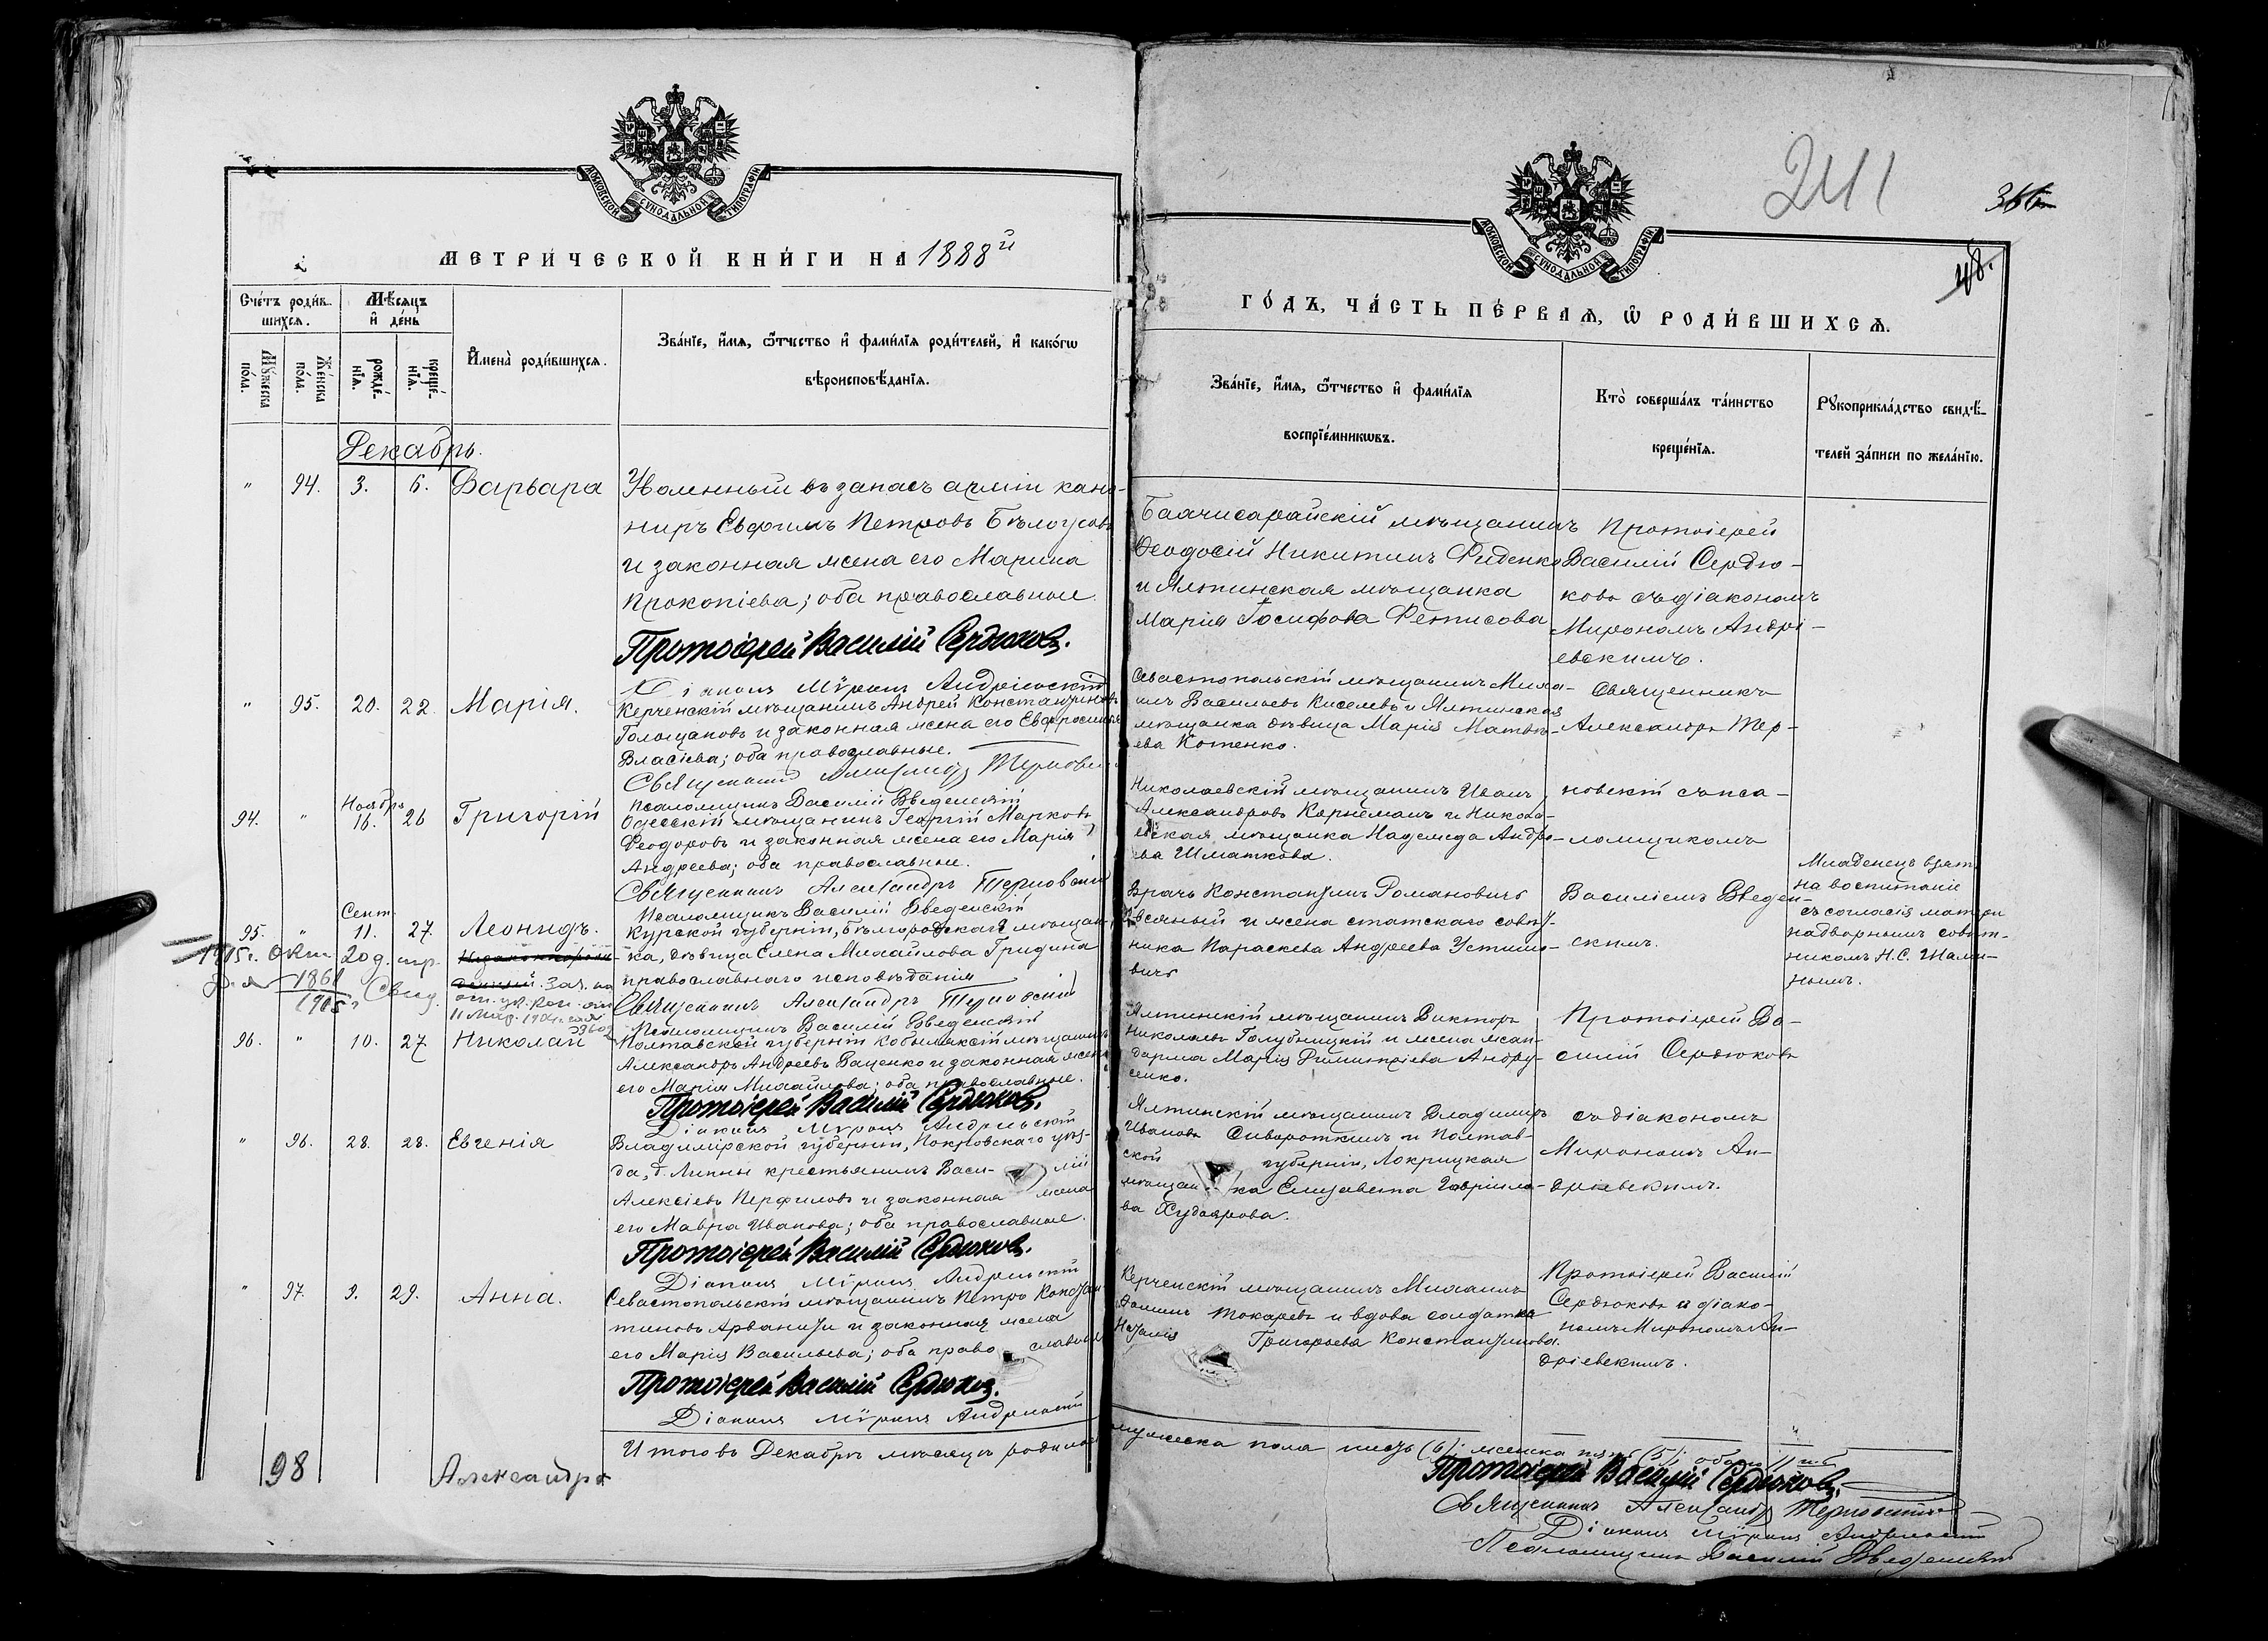 МОСКОВСКОЙ СѴНОДАЛЬНОЙ ТИПОГРАФІИ
МЕТРИЧЕСКОЙ КНИГИ НА 1888й
Счетъ родив-
шихся.
Мѣсяцъ
и день
Мужеска
пола.
Женска
пола.
рожде-
нія.
креще-
нія.
Имена родившихся.
Званіе, имя, отчество и фамилія родителей, и какого
вѣроисповѣданія.
Декабрь.
" 94. 3. 6. Варвара
Уволенный въ запасъ арміи кано-
ниръ Евфимъ Петровъ Бѣлоусовъ
и законная жена его Марина
Прокопіева; оба православные.
Протоіерей Василій Сердюковъ.
Діаконъ Мѵронъ Андріевскій
" 95. 20. 22. Марія.
Керченскій мѣщанинъ Андрей Константиновъ
Голощаповъ и законная жена его Евфросинія
Власіева; оба православные.
Священникъ Александръ Терновскій
Псаломщикъ Василій Введенскій
94. " Ноябрь 16. 26 Григорій
Одесскій мѣщанинъ Георгій Марковъ
Феодоровъ и законная жена его Марія
Андреева; оба православные.
Священникъ Александръ Терновскій
Псаломщикъ Василій Введенскій
95. " Сент. 11. 27. Леонидъ.
Курской губерніи, Бѣлгородская мѣщан-
ка, дѣвица Елена Михайлова Гридина
православнаго исповѣданія
Священникъ Александръ Терновскій
Псаломщикъ Василій Введенскій
96. " 10. 27 Николай
Полтавской губерніи Кобыляцкій мѣщанинъ
Александръ Андреевъ Ваценко и законная жена
его Марія Михайлова; оба православные.
Протоіерей Василій Сердюковъ.
Діаконъ Мѵронъ Андріевскій
" 96. 28. 28. Евгенія
Владимірской губерніи, Покровскаго уѣз-
да, д. Липны крестьянинъ Васи- лій
Алексіевъ Перфиловъ и законная жена
его Мавра Иванова; оба православные.
Протоіерей Василій Сердюковъ.
Діаконъ Мѵронъ Андріевскій
" 97. 9. 29. Анна.
Севастопольскій мѣщанинъ Петръ Констан-
тиновъ Арванити и законная жена
его Марія Васильева; оба право- славные
Протоіерей Василій Сердюковъ.
Діаконъ Мѵронъ Андріевскій
Итого въ Декабрѣ мѣсяцѣ родилось
98 Александра
241
366
48.
МОСКОВСКОЙ СѴНОДАЛЬНОЙ ТИПОГРАФІИ
ГОДЪ, ЧАСТЬ ПЕРВАЯ, Ѡ РОДИВШИХСЯ.
Званіе, имя, отчество и фамилія
воспріемниковъ.
Кто совершалъ таинство
крещенія.
Рукоприкладство свидѣ-
телей записи по желанію.
Бахчисарайскій мѣщанинъ
Феодосій Никитинъ Риденко
и Ялтинская мѣщанка
Марія Іосифова Фетисова
Протоіерей
Василій Сердю-
ковъ съ діакономъ
Мирономъ Андрі-
евскимъ.
Севастопольскій мѣщанинъ Миха-
илъ Васильевъ Киселевъ и Ялтинская
мѣщанка дѣвица Марія Матвѣ-
ева Котенко.
Священникъ
Александръ Тер-
Николаевскій мѣщанинъ Иванъ
Александровъ Корнеманъ и Никола-
евская мѣщанка Надежда Андре-
ева Шматкова.
новскій съ пса-
ломщикомъ
Врачъ Константинъ Романовичъ
Овсяный и жена статскаго совѣт-
ника Параскева Андреева Устино-
вичъ
Василіемъ Введен-
скимъ.
Младенецъ взятъ
на воспитаніе
съ согласія матери
надворнымъ совѣт-
никомъ Н. С. Шали-
нымъ.
Ялтинскій мѣщанинъ Викторъ
Николаевъ Голубницкій и жена жан-
дарма Марія Димитріева Андру-
сенко.
Протоіерей Ва-
силій Сердюковъ
Ялтинскій мѣщанинъ Владиміръ
Ивановъ Сивороткинъ и Полтав-
ской губерніи, Лохвицкая
мѣщан- ка Елизавета Гаврило-
ва Худоярова.
съ діакономъ
Мирономъ Ан-
дріевскимъ.
Керченскій мѣщанинъ Михаилъ
Фоминъ Токаревъ и вдова солдатка
Наталія Григорьева Константинова.
Протоіерей Василій
Сердюковъ и діако-
номъ Мирономъ Ан-
дріевскимъ.
мужеска пола шесть (6); женска пять (5); обоего 11ть
Протоіерей Василій Сердюковъ.
Священникъ Александръ Терновскій
Діаконъ Мѵронъ Андріевскій
Псаломщикъ Василій Введенскій